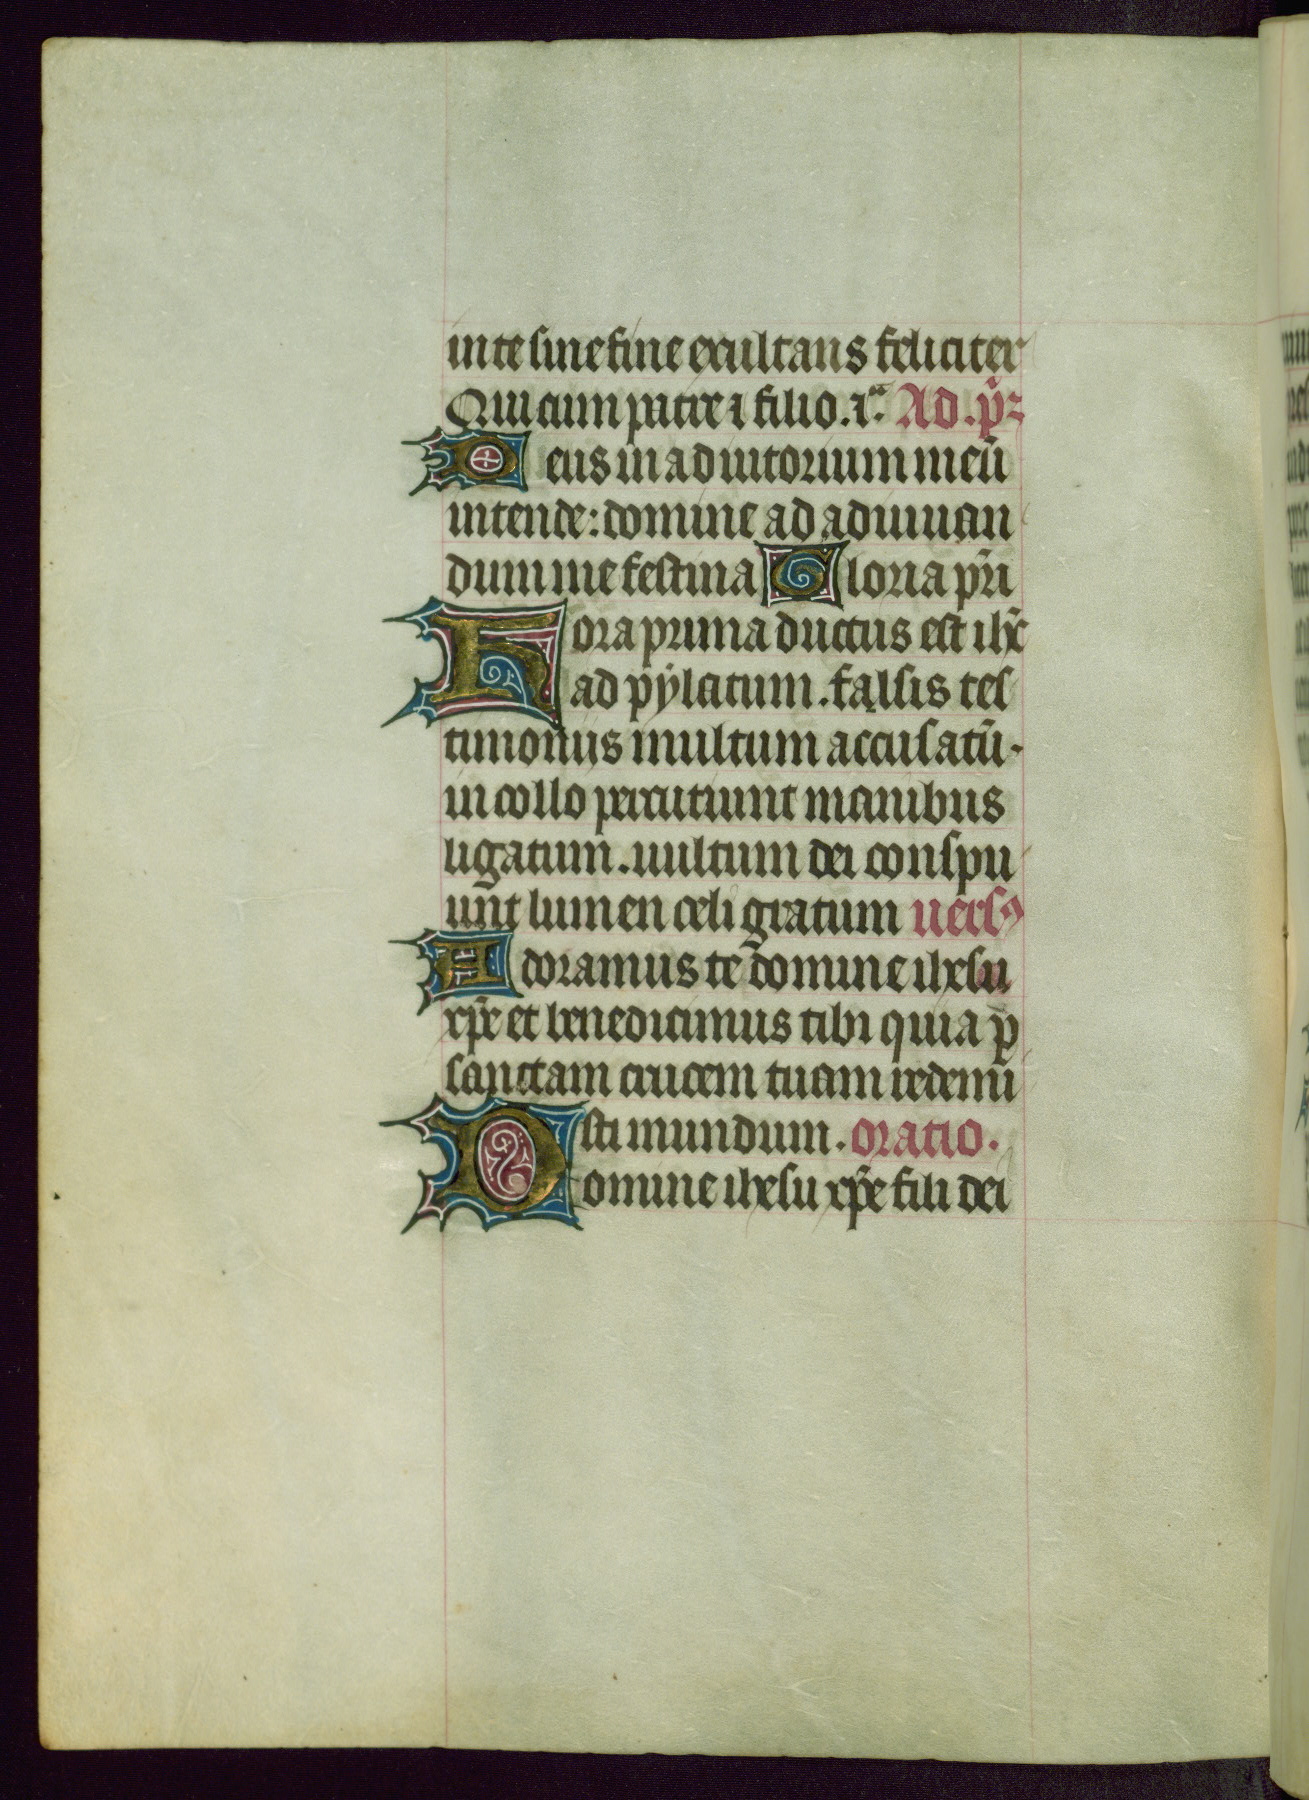 in te sine fine exultans feliciter
Qui cum patre ⁊ filio. ⁊ c̃. Ad. p̃ꝛ
Deus in adiutorium meū
intende: domine ad adiuuan
dum me festina Gloria p̃ri
Hora prima ductus est ihc̄
ad pẏlatum. falsis tes
timoniis multum accusatū.
in collo percutiunt manibus
ligatum. uultum dei conspu
unt lumen celi gratum uersꝰ
Adoramus te domine ihesu
xp̄e et benedicimus tibi quia ꝑ
sanctam crucem tuam redemi
sti mundum. oratio.
Domine ihesu xp̄e fili dei